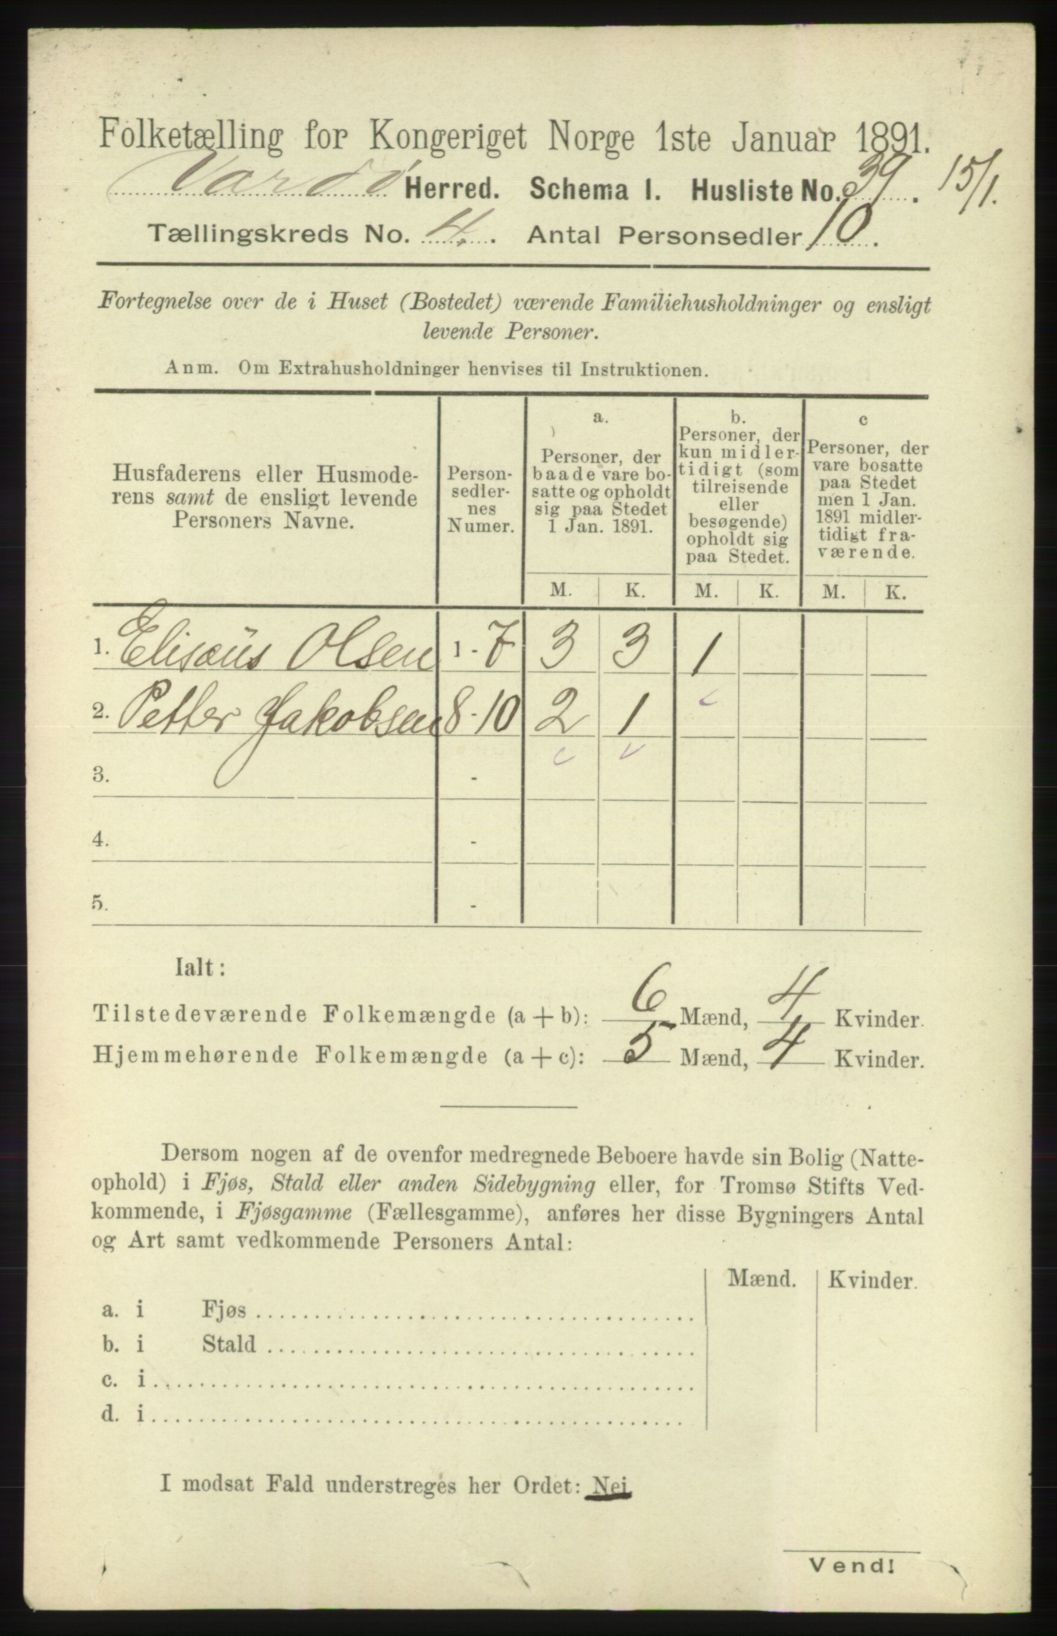 Folketælling for Kongeriget Norge 1ste Januar 1891.
Vardö Herred. Schema I. Husliste No. 39. 15/1.
Tællingskreds No. 4. Antal Personsedler 10.
Fortegnelse over de i Huset (Bostedet) værende Familiehusholdninger og ensligt
levende Personer.
Anm. Om Extrahusholdninger henvises til Instruktionen.
Husfaderens eller Husmode-
rens samt de ensligt levende
Personers Navne.
Person-
sedler-
nes
Numer.
a.
Personer, der
baade vare bo-
satte og opholdt
sig paa Stedet
1 Jan. 1891.
b.
Personer, der
kun midler-
tidigt (som
tilreisende
eller
besøgende)
opholdt sig
paa Stedet.
c
Personer, der
vare bosatte
paa Stedet
men 1 Jan.
1891 midler-
tidigt fra-
værende.
M. K. M. K. M. K.
1. Elisæüs Olsen 1 - 7 3 3 1
2. Petter Jakobsen 8 - 10 2 1
3. -
4. -
5. -
Ialt:
Tilstedeværende Folkemængde (a + b): 6 Mænd, 4 Kvinder.
Hjemmehørende Folkemængde (a + c): 5 Mænd, 4 Kvinder.
Dersom nogen af de ovenfor medregnede Beboere havde sin Bolig (Natte-
ophold) i Fjøs, Stald eller anden Sidebygning eller, for Tromsø Stifts Ved-
kommende, i Fjøsgamme (Fællesgamme), anføres her disse Bygningers Antal
og Art samt vedkommende Personers Antal:
Mænd. Kvinder.
a. i Fjøs
b. i Stald
c. i
d. i
I modsat Fald understreges her Ordet: Nei
Vend!